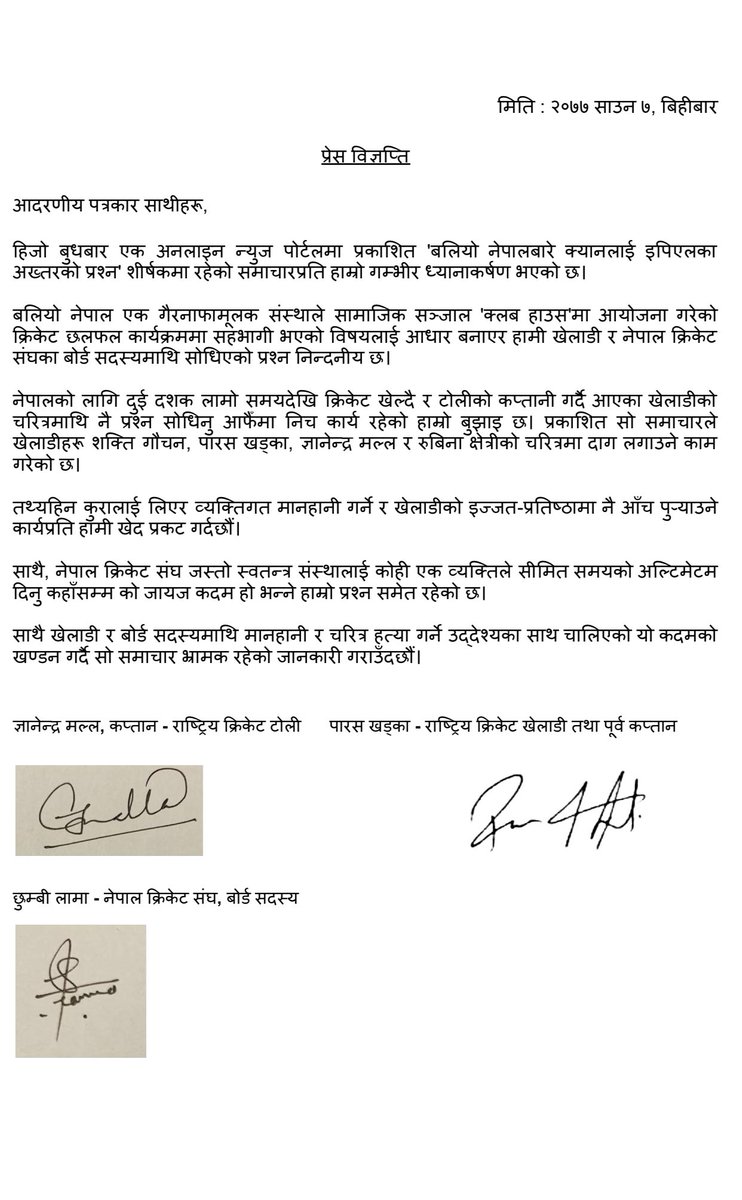 मिति : २०७७ साउन ७, बिहीबार
प्रेस विज्ञप्ति
आदरणीय पत्रकार साथीहरू,
हिजो बुधबार एक अनलाइन न्युज पोर्टलमा प्रकाशित 'बलियो नेपालबारे क्यानलाई इपिएलका
अख्तरको प्रश्न' शीर्षकमा रहेको समाचारप्रति हाम्रो गम्भीर ध्यानाकर्षण भएको छ।
बलियो नेपाल एक गैरनाफामूलक संस्थाले सामाजिक सञ्जाल 'क्लब हाउस'मा आयोजना गरेको
क्रिकेट छलफल कार्यक्रममा सहभागी भएको विषयलाई आधार बनाएर हामी खेलाडी र नेपाल क्रिकेट
संघका बोर्ड सदस्यमाथि सोधिएको प्रश्न निन्दनीय छ।
नेपालको लागि दुई दशक लामो समयदेखि क्रिकेट खेल्दै र टोलीको कप्तानी गर्दै आएका खेलाडीको
चरित्रमाथि नै प्रश्न सोधिनु आफैँमा निच कार्य रहेको हाम्रो बुझाइ छ। प्रकाशित सो समाचारले
खेलाडीहरू शक्ति गौचन, पारस खड्का, ज्ञानेन्द्र मल्ल र रुबिना क्षेत्रीको चरित्रमा दाग लगाउने काम
गरेको छ।
तथ्यहिन कुरालाई लिएर व्यक्तिगत मानहानी गर्ने र खेलाडीको इज्जत-प्रतिष्ठामा नै आँच पुऱ्याउने
कार्यप्रति हामी खेद प्रकट गर्दछौं।
साथै, नेपाल क्रिकेट संघ जस्तो स्वतन्त्र संस्थालाई कोही एक व्यक्तिले सीमित समयको अल्टिमेटम
दिनु कहाँसम्म को जायज कदम हो भन्ने हाम्रो प्रश्न समेत रहेको छ।
साथै खेलाडी र बोर्ड सदस्यमाथि मानहानी र चरित्र हत्या गर्ने उद्देश्यका साथ चालिएको यो कदमको
खण्डन गर्दै सो समाचार भ्रामक रहेको जानकारी गराउँदछौं।
ज्ञानेन्द्र मल्ल, कप्तान - राष्ट्रिय क्रिकेट टोली पारस खड्का - राष्ट्रिय क्रिकेट खेलाडी तथा पूर्व कप्तान
छुम्बी लामा - नेपाल क्रिकेट संघ, बोर्ड सदस्य